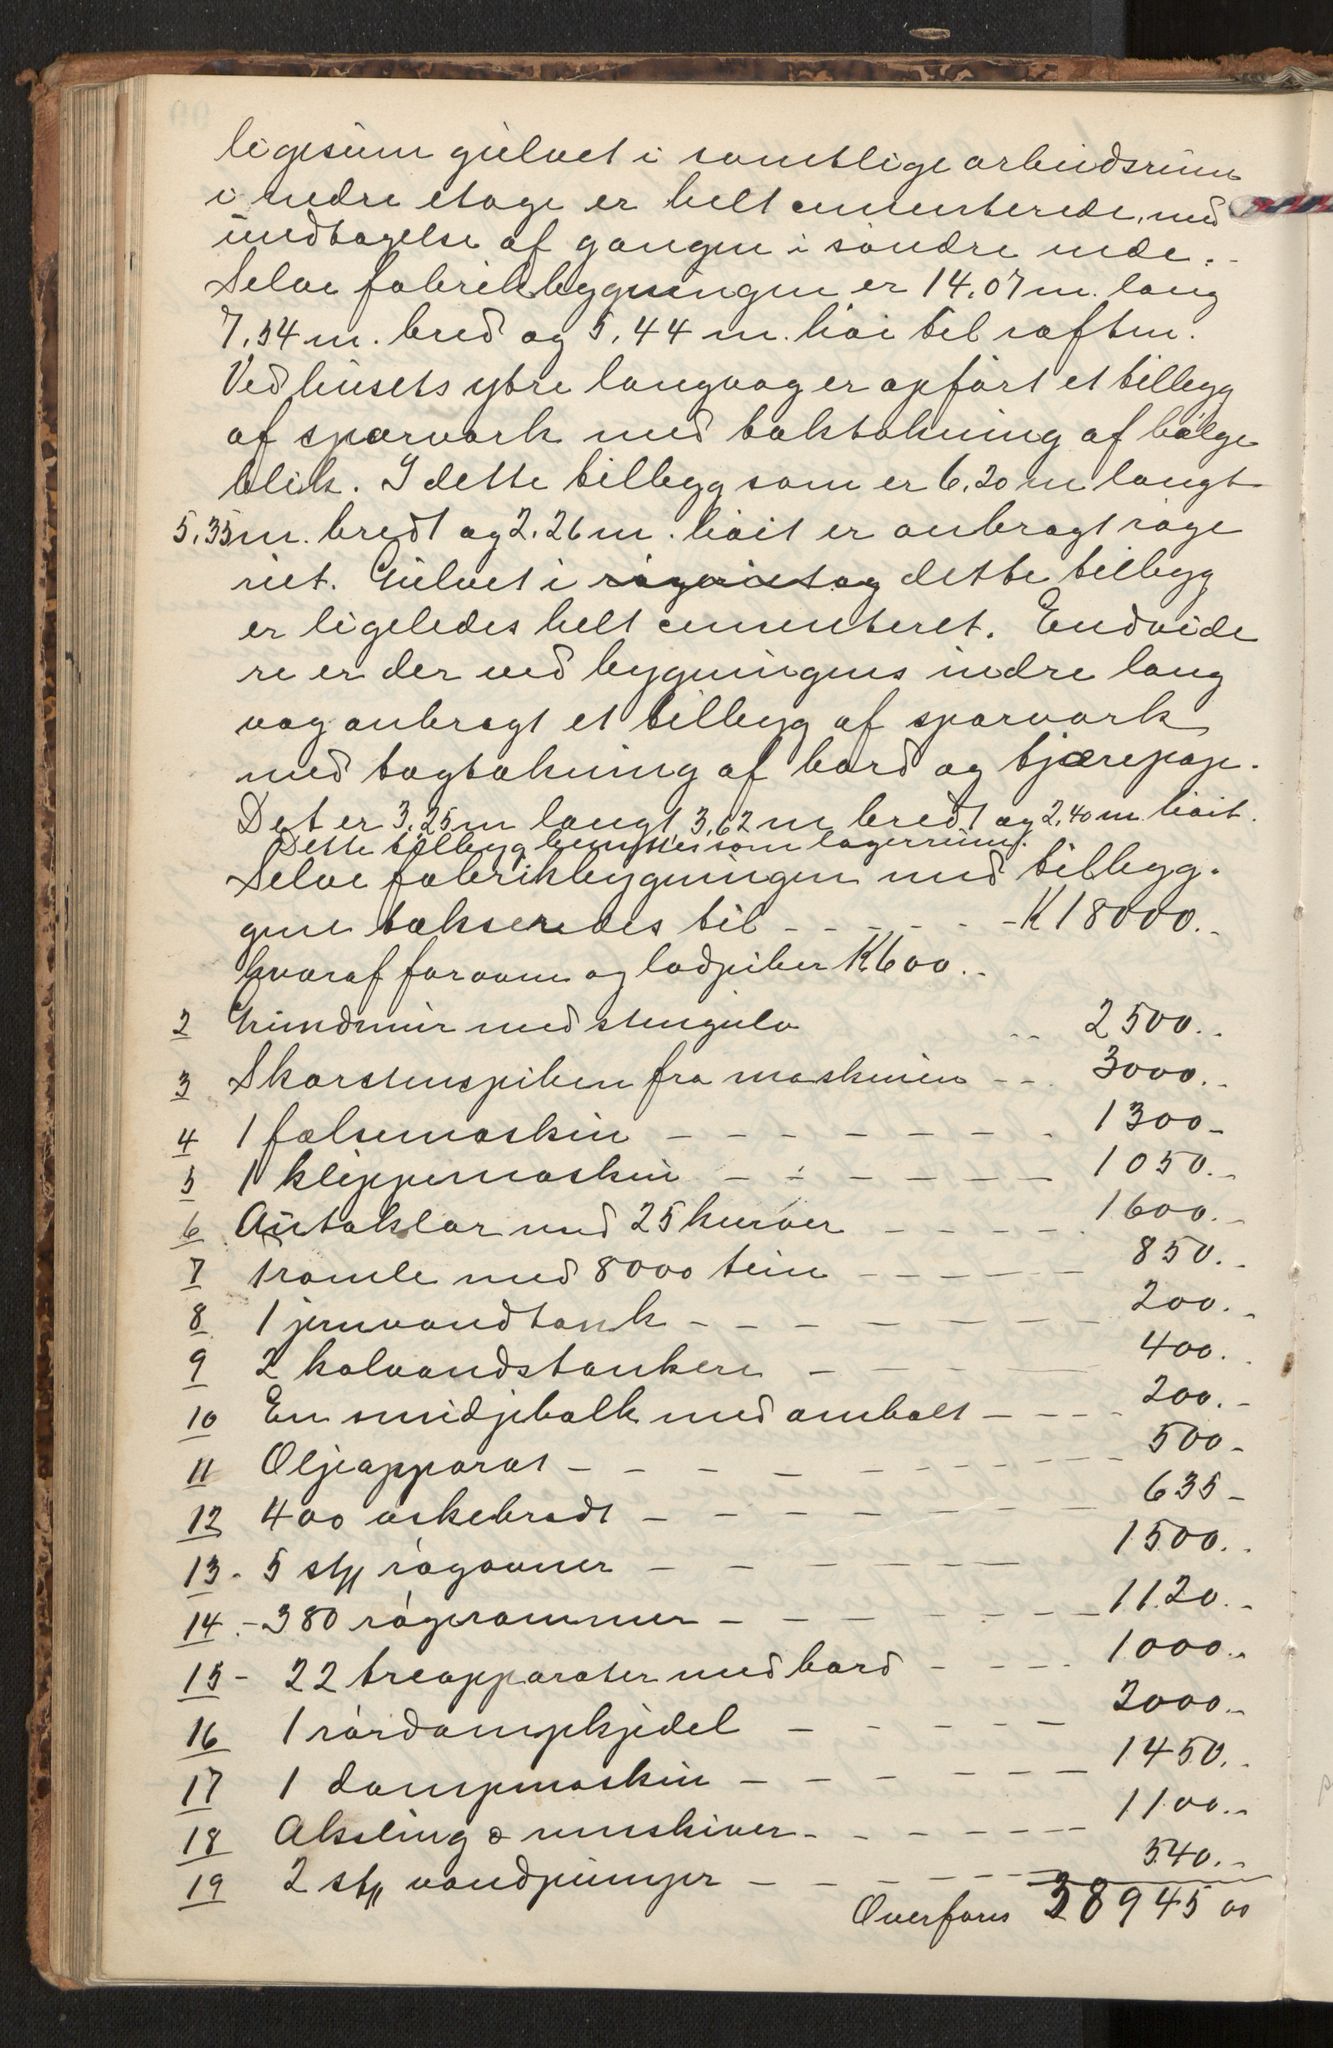 ligesum gulvet i samtlige arbeidsrum
i nedre etage er helt cementerede, med
undtagelse af gangen i søndre ende. -
Selve fabrikbygningen er 14,07 m. lang
7,54 m. bred og 5,44 m. høi til raften.
Ved husets ytre langvæg er opført et tilbygg
af sparvark med taktækning af bølge
blik. I dette tilbygg som er 6,20 m langt
5,35 m. bredt og 2,26 m. høit er anbragt røge
riet. Gulvet i røgeriet og dette tilbygg
er ligeledes helt cementeret. Endvide
re er der ved bygningens indre lang
væg anbragt et tilbygg af sparvark
med tagtækning af bord og tjærepap.
Det er 3,25 m langt, 3,62 m bredt og 2,40 m høit.
Dette tilbygg benyttes som lagerrum.
Selve fabrikbygningen med tilbygg-
gene takseredes til - - - - - - K 18000. -
hvoraf for ovne og lodpiber K 600. -
2 Grundmur med stengulv - - 2500. -
3 Skorstenspiben fra maskinen - - 3000. -
4 1 falsemaskin - - - - - - - - 1300 -
5 1 klippemaskin - - - - - - - 1050. -
6 Autoklav med 25 kurver - - - - - 1600. -
7 1 ramle med 8000 tein - - - - - 850. -
8 1 jernvandtank - - - - - - - - 200. -
9 2 kalvandstankere - - - - - 400. -
10 En smidjebalk med ambolt - - - - 200. -
11 Oljeapparat - - - - - - - - - 500 -
12 400 vskebradt - - - - - - - - 635 -
13 - 5 stk røgovner - - - - - - 1500. -
14 - 380 røgerammer - - - - - - - 1120. -
15 - 22 treapparater med bord - - - - 1000. -
16 1 rørdampkjedel - - - - - 2000. -
17 1 dampmaskin - - - - - - - 1450. -
18 Aksling & remskiver - - - - - - 1100. -
19 2 stk vandpumper - - - - - - 540. -
Overføres 38945 00